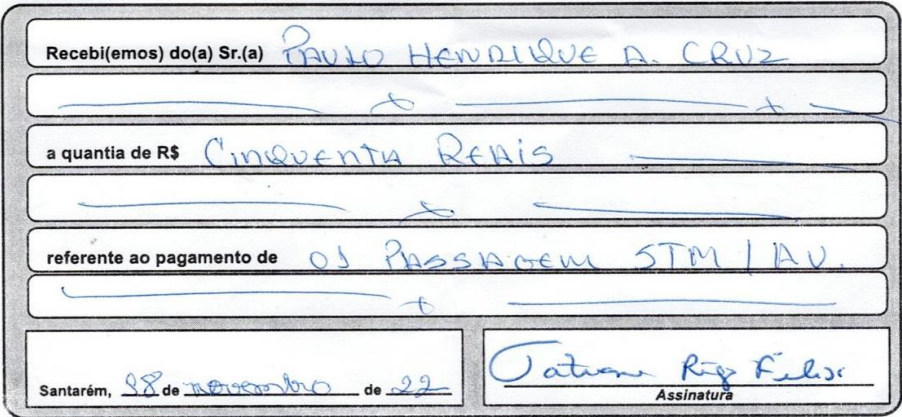 Recebi(emos) do(a) Sr.(a) PAULO HENRIQUE A. CRUZ
a quantia de R$ CINQUENTA REAIS
referente ao pagamento de 01 PASSAGEM STM / AV.
Santarém, de novembro de 22
Tatiane Felix
Assinatura